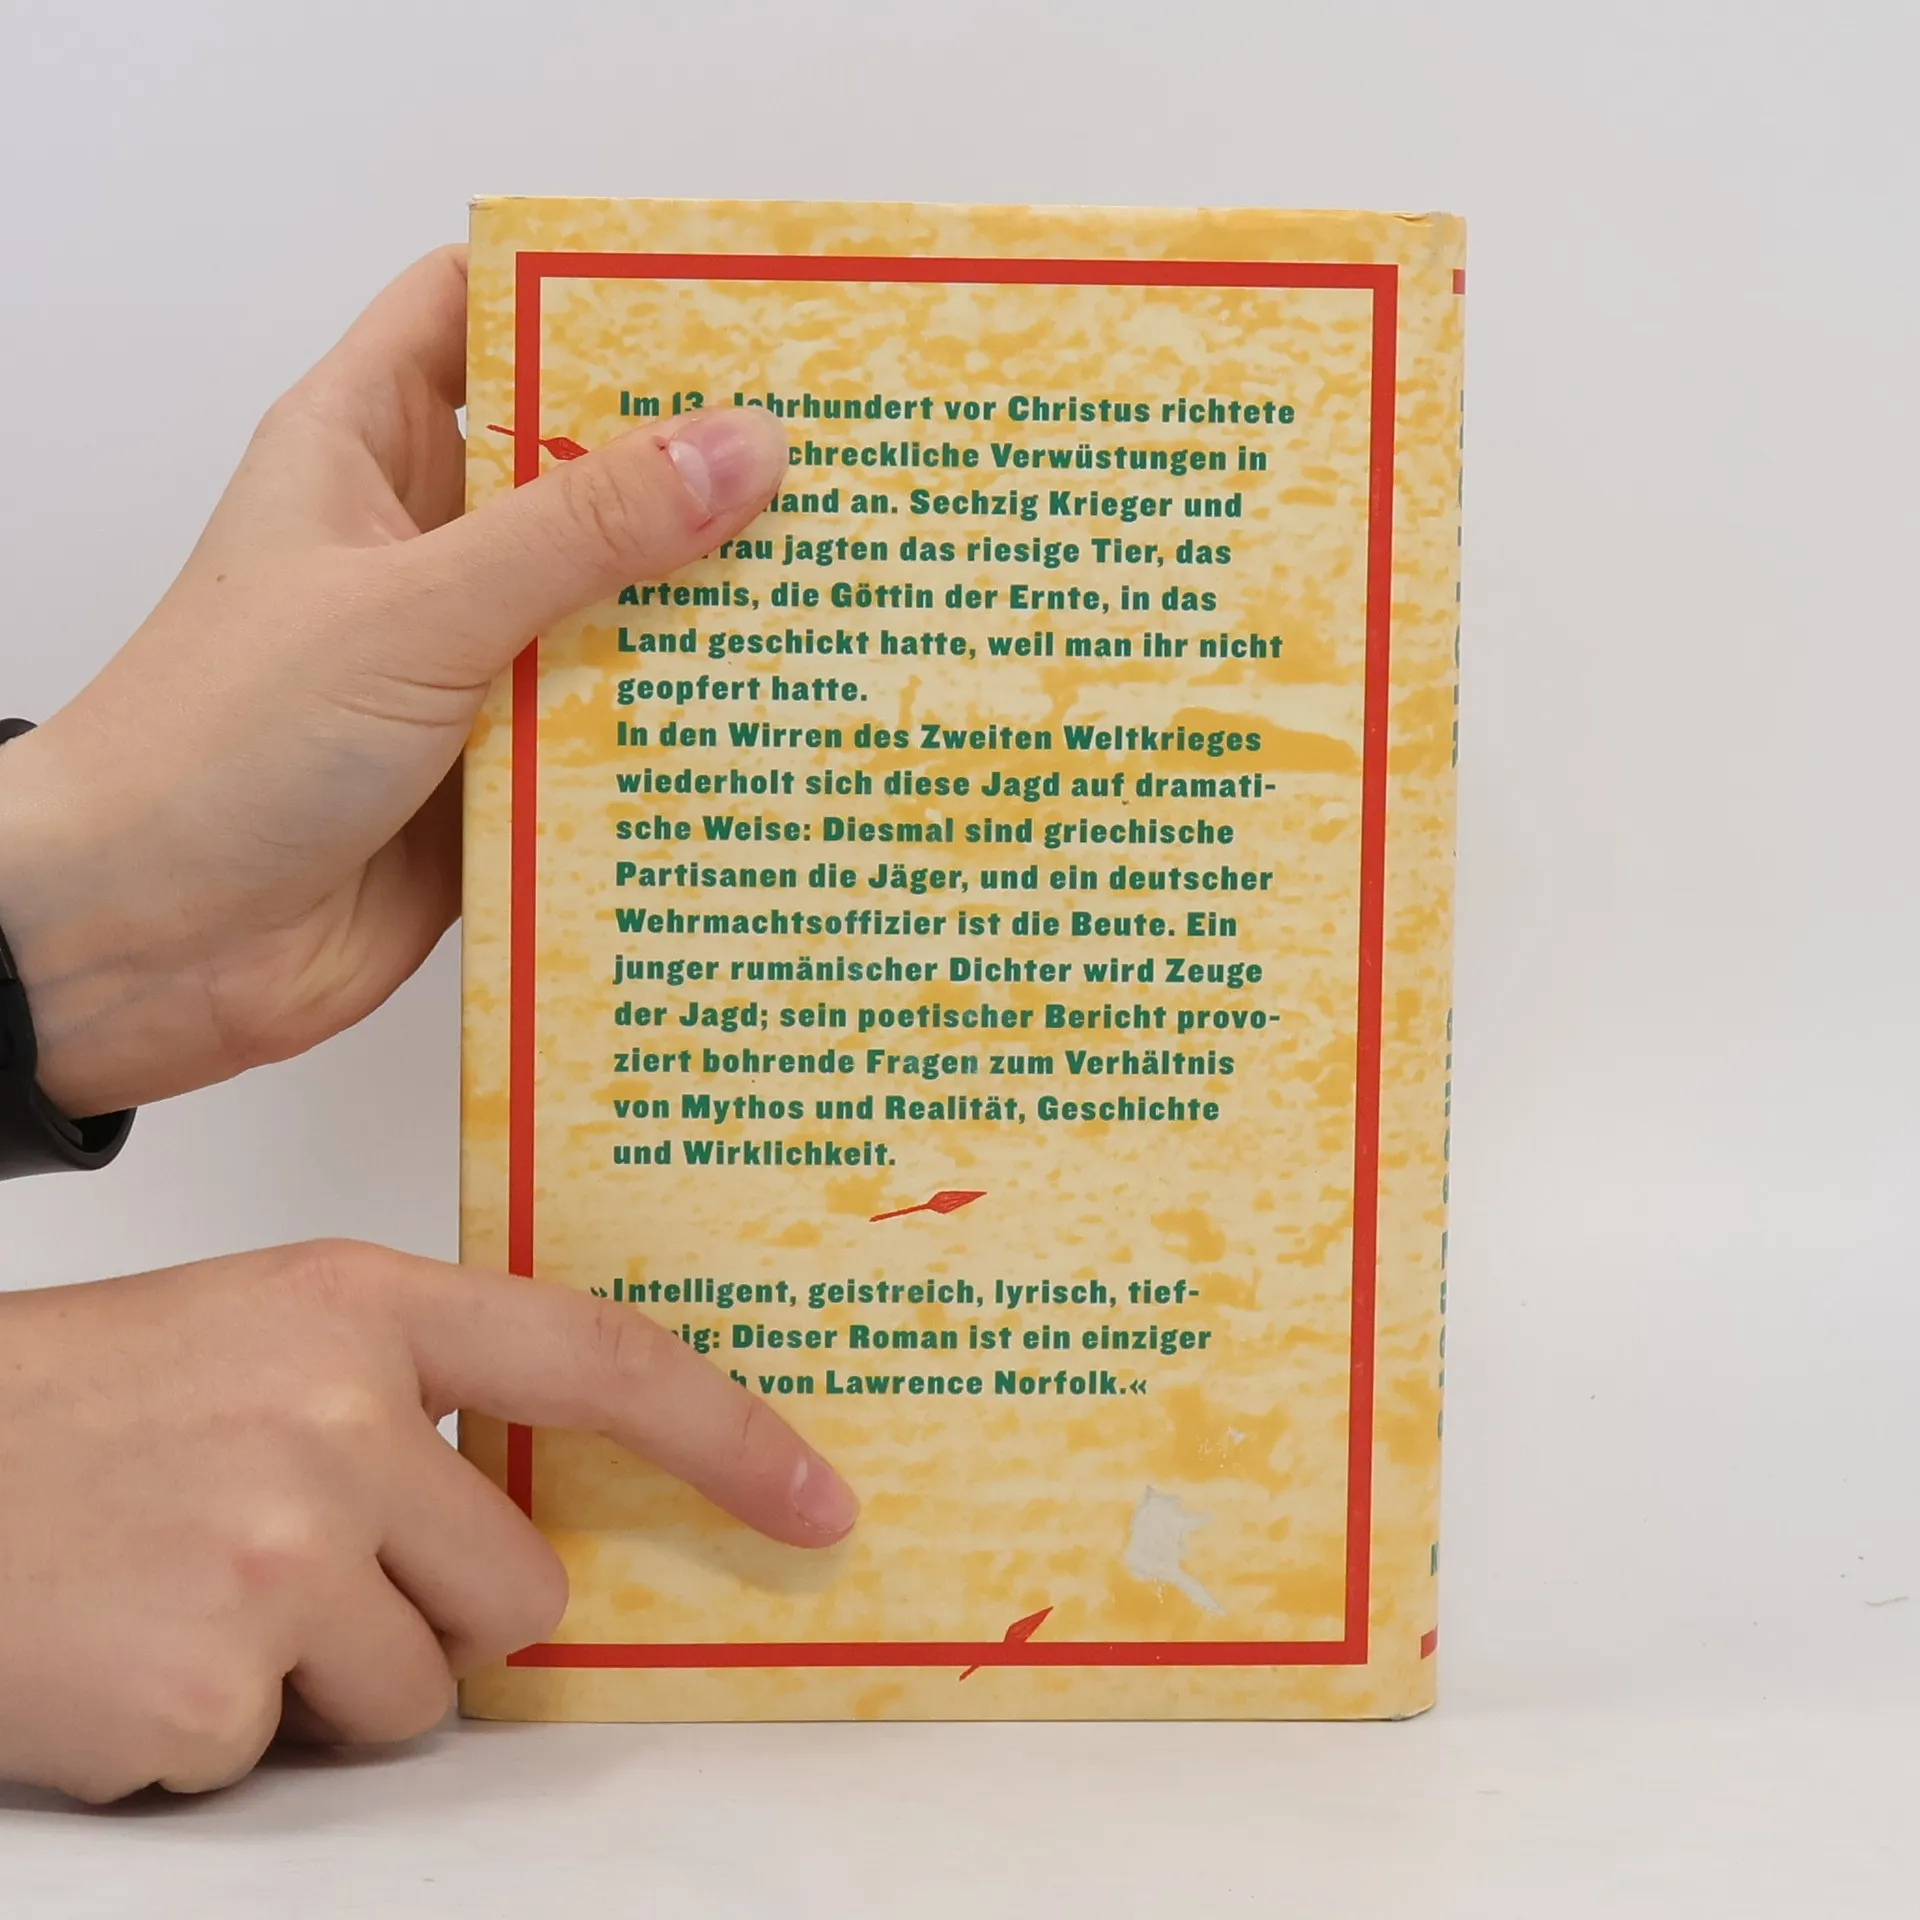 Im 13. Jahrhundert vor Christus richtete
schreckliche Verwüstungen in
an. Sechzig Krieger und
Frau jagten das riesige Tier, das
Artemis, die Göttin der Ernte, in das
Land geschickt hatte, weil man ihr nicht
geopfert hatte.
In den Wirren des Zweiten Weltkrieges
wiederholt sich diese Jagd auf dramati-
sche Weise: Diesmal sind griechische
Partisanen die Jäger, und ein deutscher
Wehrmachtsoffizier ist die Beute. Ein
junger rumänischer Dichter wird Zeuge
der Jagd; sein poetischer Bericht provo-
ziert bohrende Fragen zum Verhältnis
von Mythos und Realität, Geschichte
und Wirklichkeit.
»Intelligent, geistreich, lyrisch, tief-
Dieser Roman ist ein einziger
von Lawrence Norfolk.«